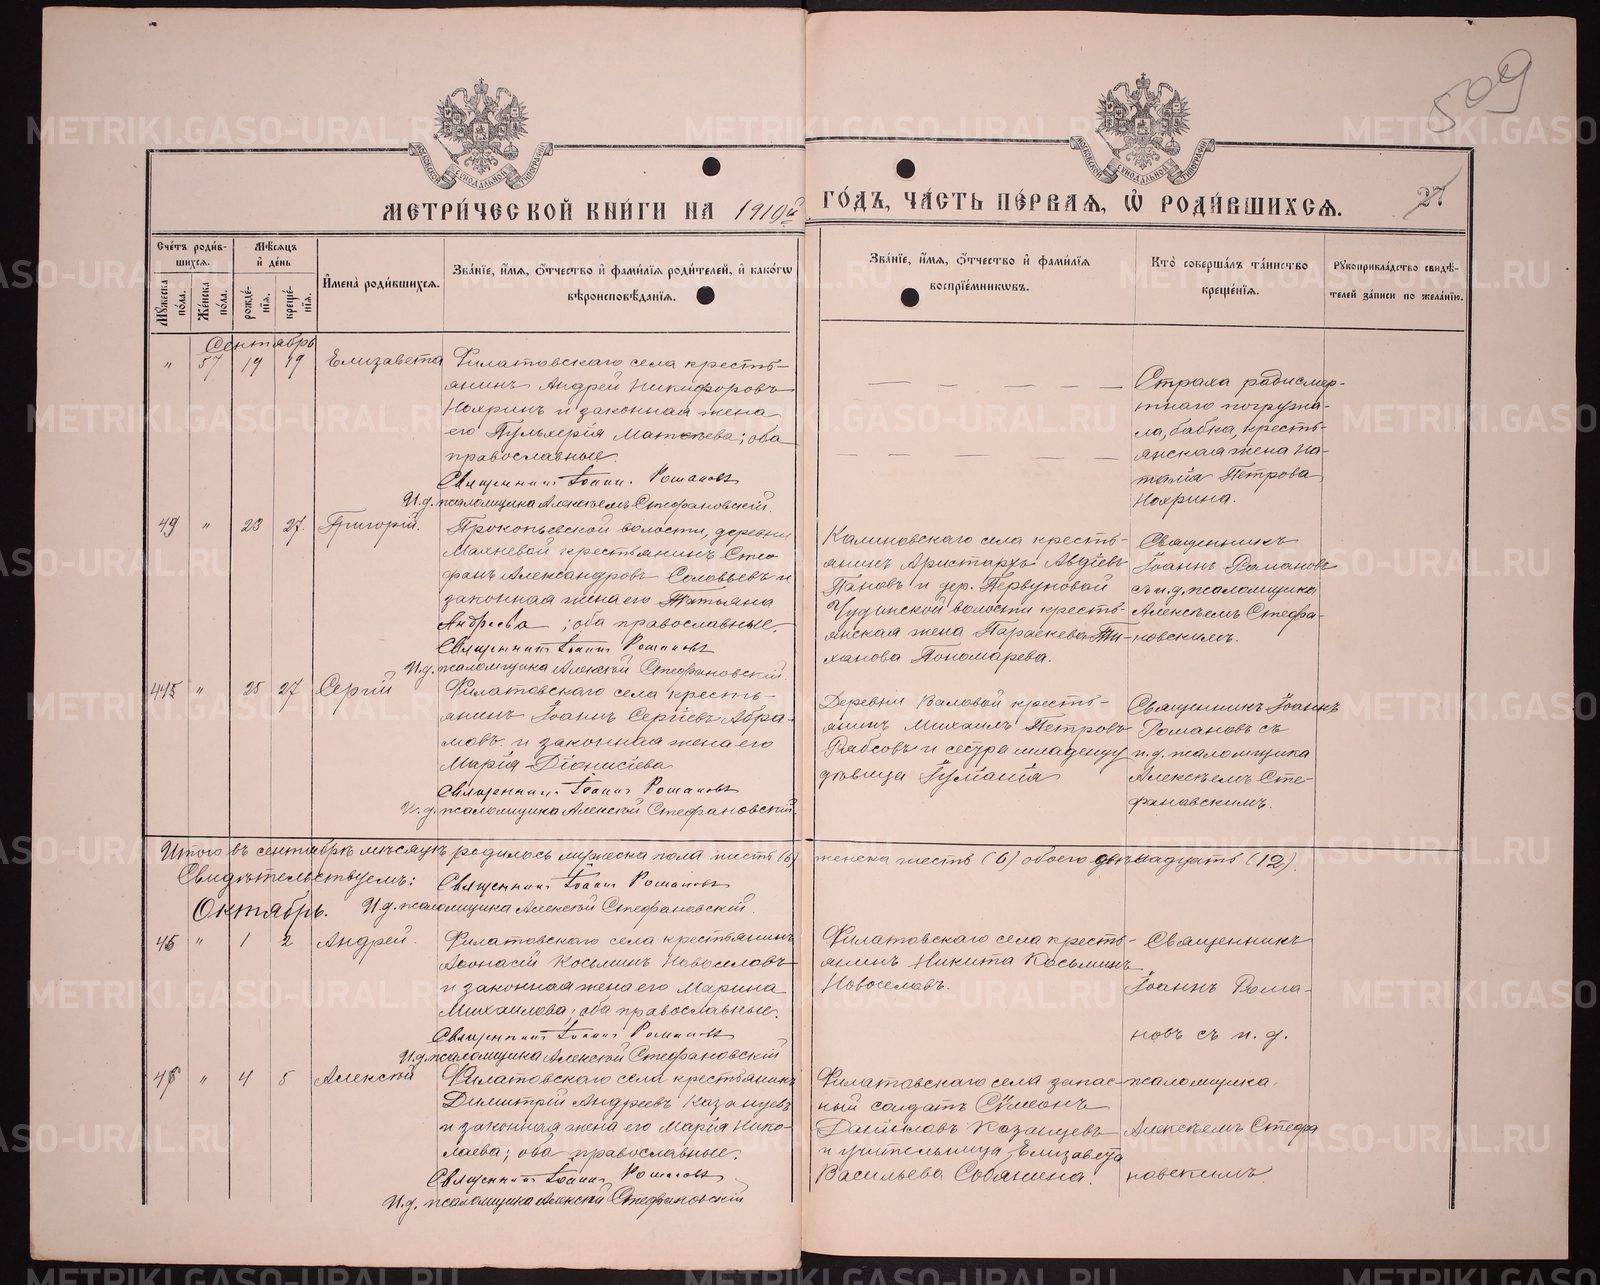 509
МЕТРИ́ЧЕСКОЙ КНИ́ГИ НА 1910й
ГО́ДЪ, ЧА́СТЬ ПЕ́РВАЯ, Ѡ҆ РОДИ́ВШИХСЯ.
27
Сче́тъ роди́в-
шихся.
Мꙋжеска по́ла.
Же́нска по́ла.
Мѣ́сяцъ
и҆ де́нь
рожде́-
нїя.
креще́-
нїя.
И҆мена̀ роди́вшихся.
Зва́нїе, и҆́мя, ѻ҆́тчество и҆ фами́лїя роди́телей, и҆ како́гѡ
вѣроисповѣ́данїя.
Зва́нїе, и҆́мя, ѻ҆́тчество и҆ фами́лїя
воспрїе́мникѡвъ.
Кто̀ соверша́лъ та́инство
креще́нїя.
Рꙋкоприкла́дство свидѣ́-
телей за́писи по жела́нїю.
Сентябрь
" 57 19 19 Елизавета
Филатовскаго села кресть-
янинъ Андрей Никифоровъ
Нохринъ и законная жена
его Пульхерія Матѳеева; оба
православные.
Священникъ Іоаннъ Романовъ
И.д. псаломщика Алексѣй Стефановскій.
Страха ради смер-
тнаго погрузи-
ла, бабка, кресть-
янская жена На-
талія Петрова
Нохрина.
49 " 23 27. Григорій.
Прокопьевской волости, деревни
Махневой крестьянинъ Сте-
фанъ Александровъ Соловьевъ и
законная жена его Татьяна
Андреева; оба православные.
Священникъ Іоаннъ Романовъ
И.д. псаломщика Алексѣй Стефановскій.
Калиновскаго села кресть-
янинъ Аристархъ Авдіевъ
Пановъ и дер. Первуновой
Чудинской волости кресть-
янская жена Параскева Ти-
ханова Пономарева.
Священникъ
Іоаннъ Романовъ
съ и.д. псаломщика
Алексѣемъ Стефа-
новскимъ.
445 " 25 27 Сергій
Филатовскаго села кресть-
янинъ Іоаннъ Сергіевъ Абра-
мовъ и законная жена его
Марія Діонисіева
Священникъ Іоаннъ Романовъ
И.д. псаломщика Алексѣй Стефановскій.
Деревни Валовой кресть-
янинъ Михаилъ Петровъ
и сестра младенцу
дѣвица Іуліанія
Священникъ Іоаннъ
Романовъ съ
и.д. псаломщика
Алексѣемъ Сте-
фановскимъ.
Итого въ сентябрѣ мѣсяцѣ родилось мужеска пола шесть (6)
женска шесть (6) обоего двѣнадцать (12).
Свидѣтельствуемъ: Священникъ Іоаннъ Романовъ
Октябрь. И.д. псаломщика Алексѣй Стефановскій.
46 " 1 2 Андрей.
Филатовскаго села крестьянинъ
Аѳонасій Косьминъ Новоселовъ
и законная жена его Марина
Михаилова; оба православные.
Священникъ Іоаннъ Романовъ
И.д. псаломщика Алексѣй Стефановскій
Филатовскаго села кресть-
янинъ Никита Косьминъ
Новоселовъ.
Священникъ
Іоаннъ Рома-
новъ съ и.д.
4 5 Алексѣй
Филатовскаго села крестьянинъ
Димитрій Андреевъ Казанцевъ
и законная жена его Марія Нико-
лаева; оба православные.
Священникъ Іоаннъ Романовъ
И.д. псаломщика Алексѣй Стефановскій
Филатовскаго села запас-
ный солдатъ Сѵмеонъ
Даниловъ Казанцевъ
и учительница Елизавета
Васильева Собянина.
псаломщика
Алексѣемъ Стефа
новскимъ
METRIKI.GASO-URAL.RU